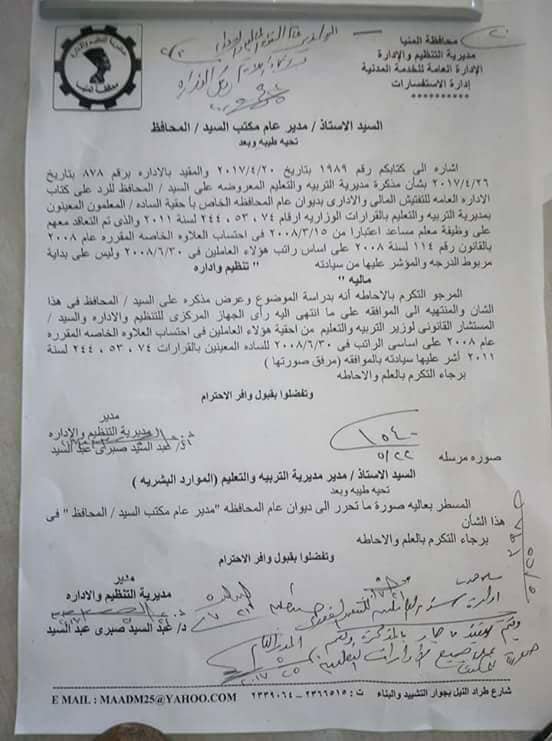 محافظة المنيا
مديرية التنظيم والإدارة
الإدارة العامة للخدمة المدنية
إدارة الاستفسارات
**********
السيد الاستاذ / مدير عام مكتب السيد / المحافظ
تحيه طيبه وبعد
اشاره الى كتابكم رقم ١٩٨٩ بتاريخ ٢٠١٧/٤/٢٠ والمقيد بالاداره برقم ٨٧٨ بتاريخ
٢٠١٧/٤/٢٦ بشأن مذكرة مديرية التربيه والتعليم المعروضه على السيد / المحافظ للرد على كتاب
الاداره العامه للتفتيش المالى والادارى بديوان عام المحافظه الخاص بأحقية الساده / المعلمون المعينون
بمديرية التربيه والتعليم بالقرارات الوزاريه ارقام ٧٤ ، ٥٣ ، ٢٤٤ لسنة ٢٠١١ والذى تم التعاقد معهم
على وظيفة معلم مساعد اعتبارا من ٢٠٠٨/٣/١٥ فى احتساب العلاوه الخاصه المقرره عام ٢٠٠٨
بالقانون رقم ١١٤ لسنة ٢٠٠٨ على اساس راتب هؤلاء العاملين فى ٢٠٠٨/٦/٣٠ وليس على بداية
مربوط الدرجه والمؤشر عليها من سيادته " تنظيم واداره
ماليه "
المرجو التكرم بالاحاطه أنه بدراسة الموضوع وعرض مذكره على السيد / المحافظ فى هذا
الشان والمنتهيه الى الموافقه على ما انتهى اليه رأى الجهاز المركزى للتنظيم والاداره والسيد /
المستشار القانونى لوزير التربيه والتعليم من احقية هؤلاء العاملين فى احتساب العلاوه الخاصه المقرره
عام ٢٠٠٨ على اساسى الراتب فى ٢٠٠٨/٦/٣٠ للساده المعينين بالقرارات ٧٤ ، ٥٣ ، ٢٤٤ لسنة
٢٠١١ أشر عليها سيادته بالموافقه ( مرفق صورتها )
برجاء التكرم بالعلم والاحاطه
وتفضلوا بقبول وافر الاحترام
مدير
مديرية التنظيم والإداره
د/ عبد السيد صبرى عبد السيد
١٥٤٠
٥/٢٢
صوره مرسله
السيد الاستاذ / مدير مديرية التربيه والتعليم (الموارد البشريه )
تحيه طيبه وبعد
المسطر بعاليه صورة ما تحرر الى ديوان عام المحافظه "مدير عام مكتب السيد / المحافظ " فى
هذا الشأن
برجاء التكرم بالعلم والاحاطه
وتفضلوا بقبول وافر الاحترام
مدير
مديرية التنظيم والاداره
د/ عبد السيد صبرى عبد السيد
شارع طراد النيل بجوار التشييد والبناء ت : ٢٣٦٦٥١٥ – ٢٣٣٩٠٦٤ E MAIL : MAADM25@YAHOO.COM